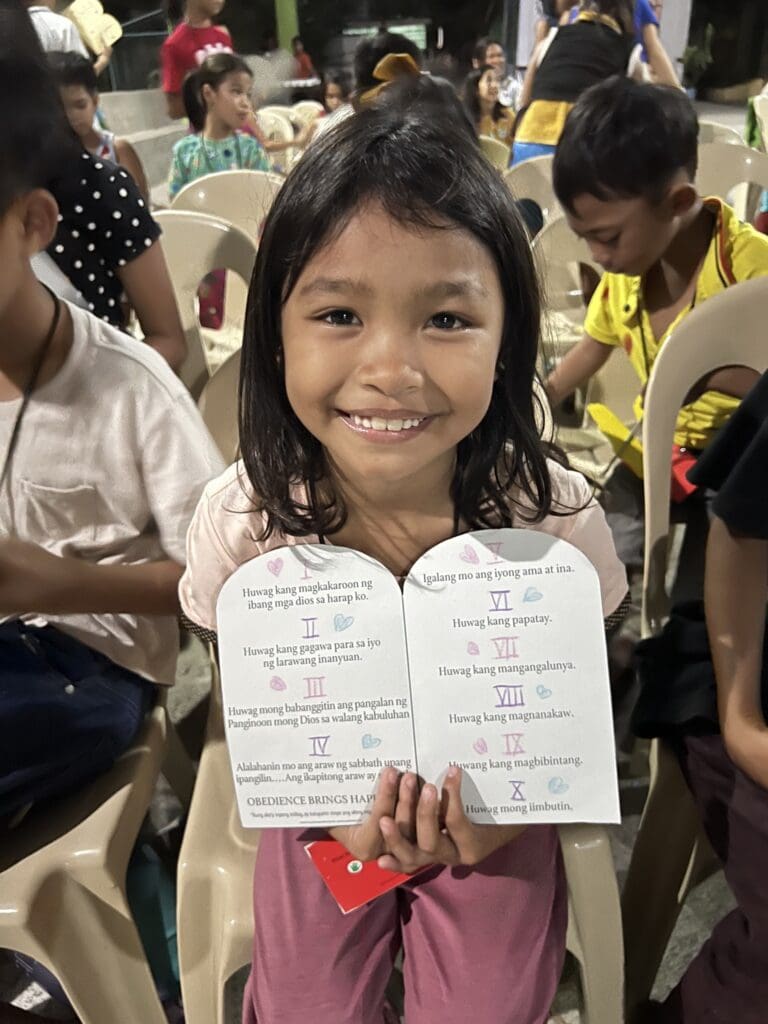 I
Huwag kang magkakaroon ng
ibang mga dios sa harap ko.
II
Huwag kang gagawa para sa iyo
ng larawang inanyuan.
III
Huwag mong babanggitin ang pangalan ng
Panginoon mong Dios sa walang kabuluhan
IV
Alalahanin mo ang araw ng sabbath upang
ipangilin....Ang ikapitong araw ay
OBEDIENCE BRINGS HAP
V
Igalang mo ang iyong ama at ina.
VI
Huwag kang papatay.
VII
Huwag kang mangangalunya.
VIII
Huwag kang magnanakaw.
IX
Huwang kang magbibintang.
X
Huwag mong iimbutin.